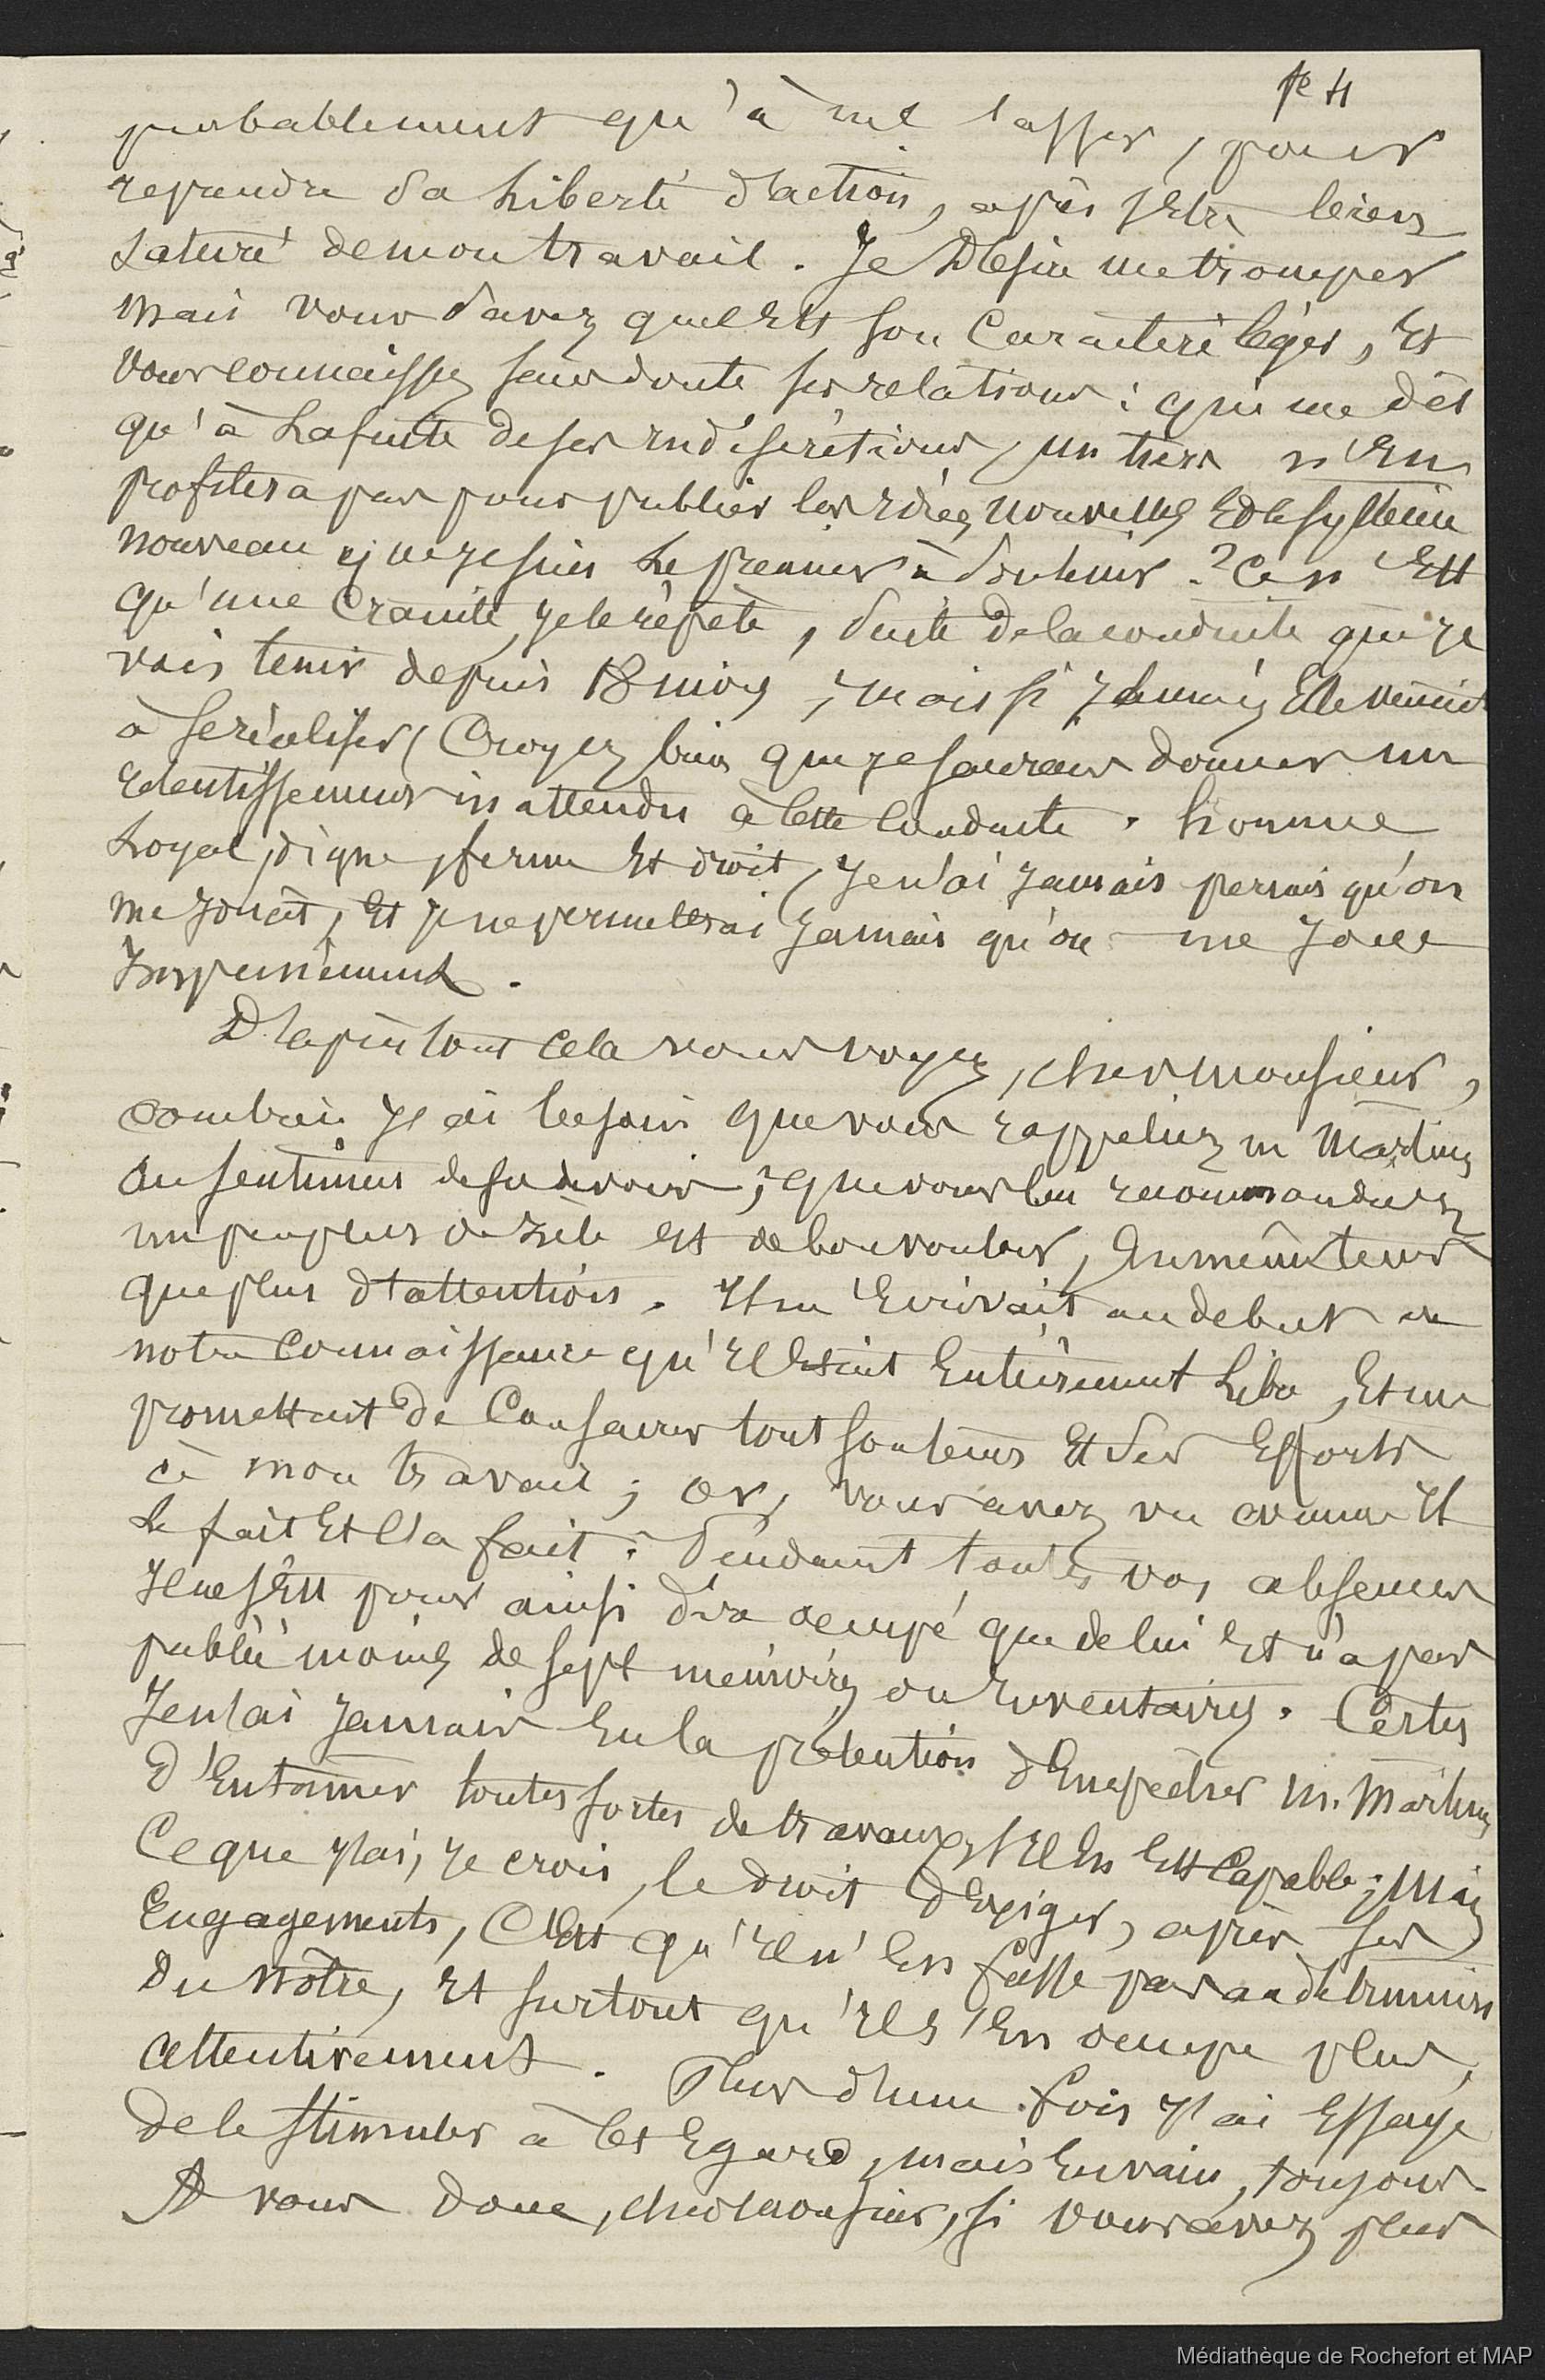 pe 4
probablement qu'à me lasser, pour
reprendre sa liberté d'action, après s'être bien
saturé de mon travail. Je désire me tromper
mais vous savez quel est son caractère léger, et
vous connaissez sans doute ses relations : qui me dit
qu'à la suite de ses indiscrétions, un tiers n'en
profitera pas pour publier les idées nouvelles et le système
nouveau que je suis le premier à soutenir ? Ce n'est
qu'une crainte, je le répète, suite de la conduite que je
vois tenir depuis 18 mois, mais si jamais elle venait
à se réaliser, croyez bien que je saurais donner un
retentissement inattendu à cette conduite. Homme
loyal, digne, ferme et droit, je n'ai jamais permis qu'on
me jouât, et je ne permettrai jamais qu'on me joue
impunément.
D'après tout cela vous voyez, cher monsieur,
combien j'ai besoin que vous rappeliez m Martin
au sentiment de son devoir, que vous lui recommandiez
un peu plus de zèle et de bon vouloir, en même temps
que plus d'attention. Il m'écrivait au début de
notre connaissance qu'il était entièrement libre, et me
promettait de consacrer tout son temps et ses efforts
à mon travail ; or, vous avez vu comme il
le fait et l'a fait : Pendant toutes vos absences
il ne s'est pour ainsi dire occupé que de lui et n'a pas
publié moins de sept mémoires ou inventaires. Certes
je n'ai jamais eu la prétention d'empêcher m. Martin
d'entamer toutes sortes de travaux, s'il en est capable ; mais
ce que j'ai, je crois, le droit d'exiger, après ses
engagements, c'est qu'il n'en fasse pas au détriment
du nôtre, et surtout qu'il s'en occupe plus
attentivement. Plus d'une fois j'ai essayé
de le stimuler à cet égard, mais en vain, toujours
A vous donc, cher monsieur, si vous avez plus
Médiathèque de Rochefort et MAP